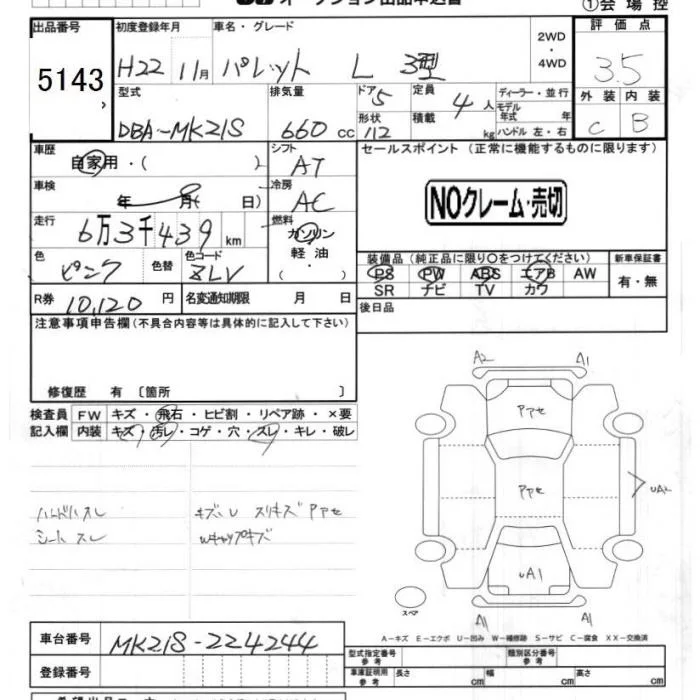 ①会 場 控
出品番号 初度登録年月 車名・グレード 2WD ・ 4WD 評 価 点
5143 H22 11月 パレット L 3型 3.5
型式 排気量 ドア 5 定員 4 人 ディーラー・並行 外 装 内 装
DBA-MK21S 660 cc 形状 112 積載 kg モデル年式 年 ハンドル 左・右 C B
車歴 自家用・( ) シフト AT セールスポイント (正常に機能するものに限ります)
車検 年 月( 日) 冷房 AC NOクレーム・売切
走行 6万3千439 km 燃料 ガソリン 軽油 ・( )
色 ピンク 色替 色コード ZLV 装備品(純正品に限り○をつけてください) 新車保証書
PS PW ABS エアB AW 有・無
SR ナビ TV カワ
R券 10,120 円 名変通知期限 月 日 後日品
注意事項申告欄(不具合内容等は具体的に記入して下さい)
修復歴 有 〔箇所 〕
検査員 FW キズ・飛石・ヒビ割・リペア跡・×要
記入欄 内装 キズ・汚レ・コゲ・穴・スレ・キレ・破レ
ハンドルスレ キズ、U スリキズ Pアセ
シートスレ Wキャップキズ
A2 A1
Pアセ
Pアセ UA2
UA1
スペア A1 A1
A-キズ E-エクボ U-凹み W-補修跡 S-サビ C-腐食 XX-交換済
車台番号 MK21S-224244 型式指定番号 参考 類別区分番号 参考
登録番号 車庫証明用 参考 長さ cm 幅 cm 高さ cm